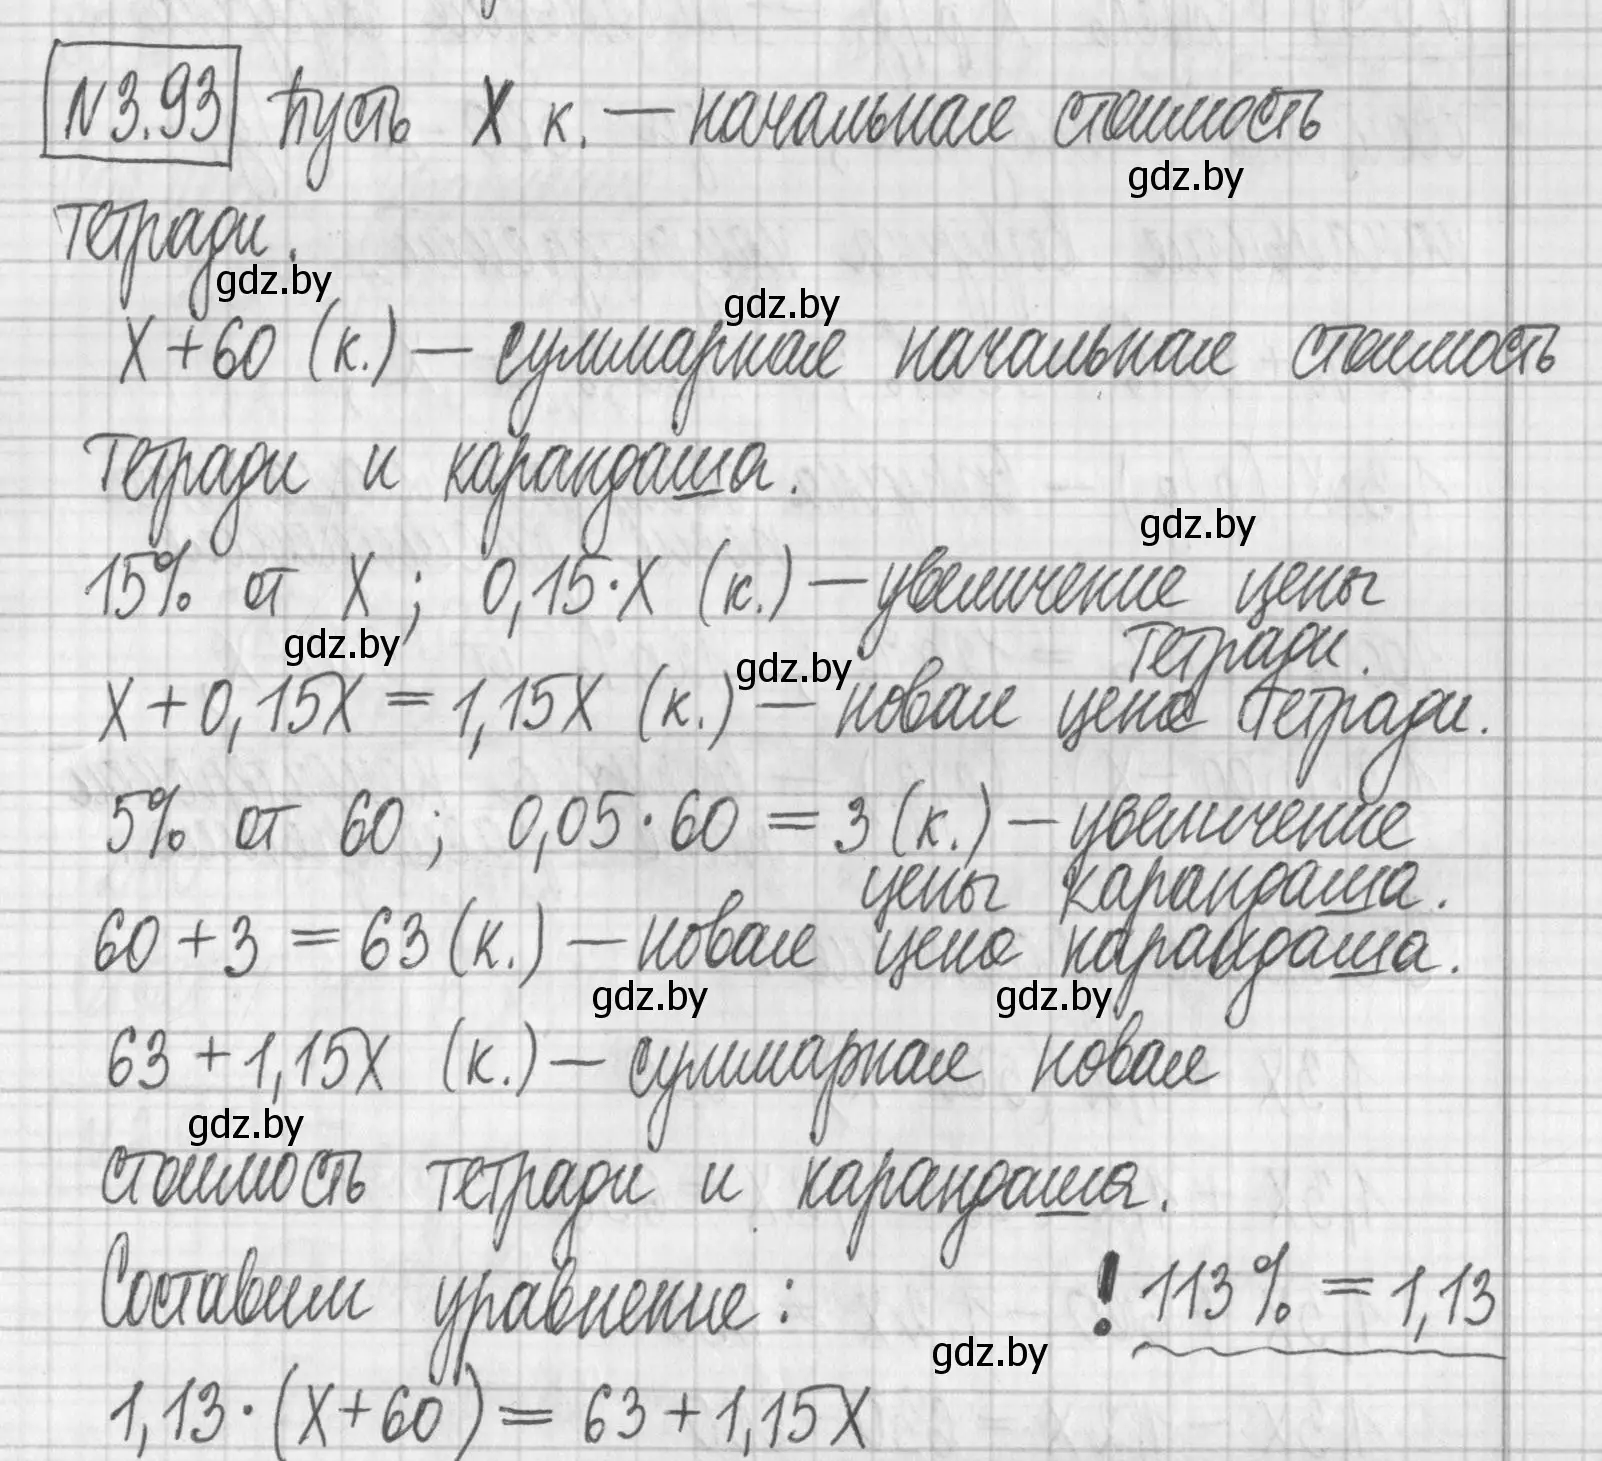 N3.93 Пусть X к. — начальная стоимость
gdz.by
тетради.
gdz.by
gdz.by
X + 60 (к.) — суммарная начальная стоимость
тетради и карандаша.
gdz.by
15% от X; 0,15·X (к.) — увеличение цены
тетради.
gdz.by
gdz.by
X + 0,15X = 1,15X (к.) — новая цена тетради.
5% от 60; 0,05·60 = 3 (к.) — увеличение
цены карандаша.
60 + 3 = 63 (к.) — новая цена карандаша.
gdz.by
gdz.by
63 + 1,15X (к.) — суммарная новая
gdz.by
стоимость тетради и карандаша.
Составим уравнение: ! 113% = 1,13
gdz.by
1,13·(X+60) = 63 + 1,15X